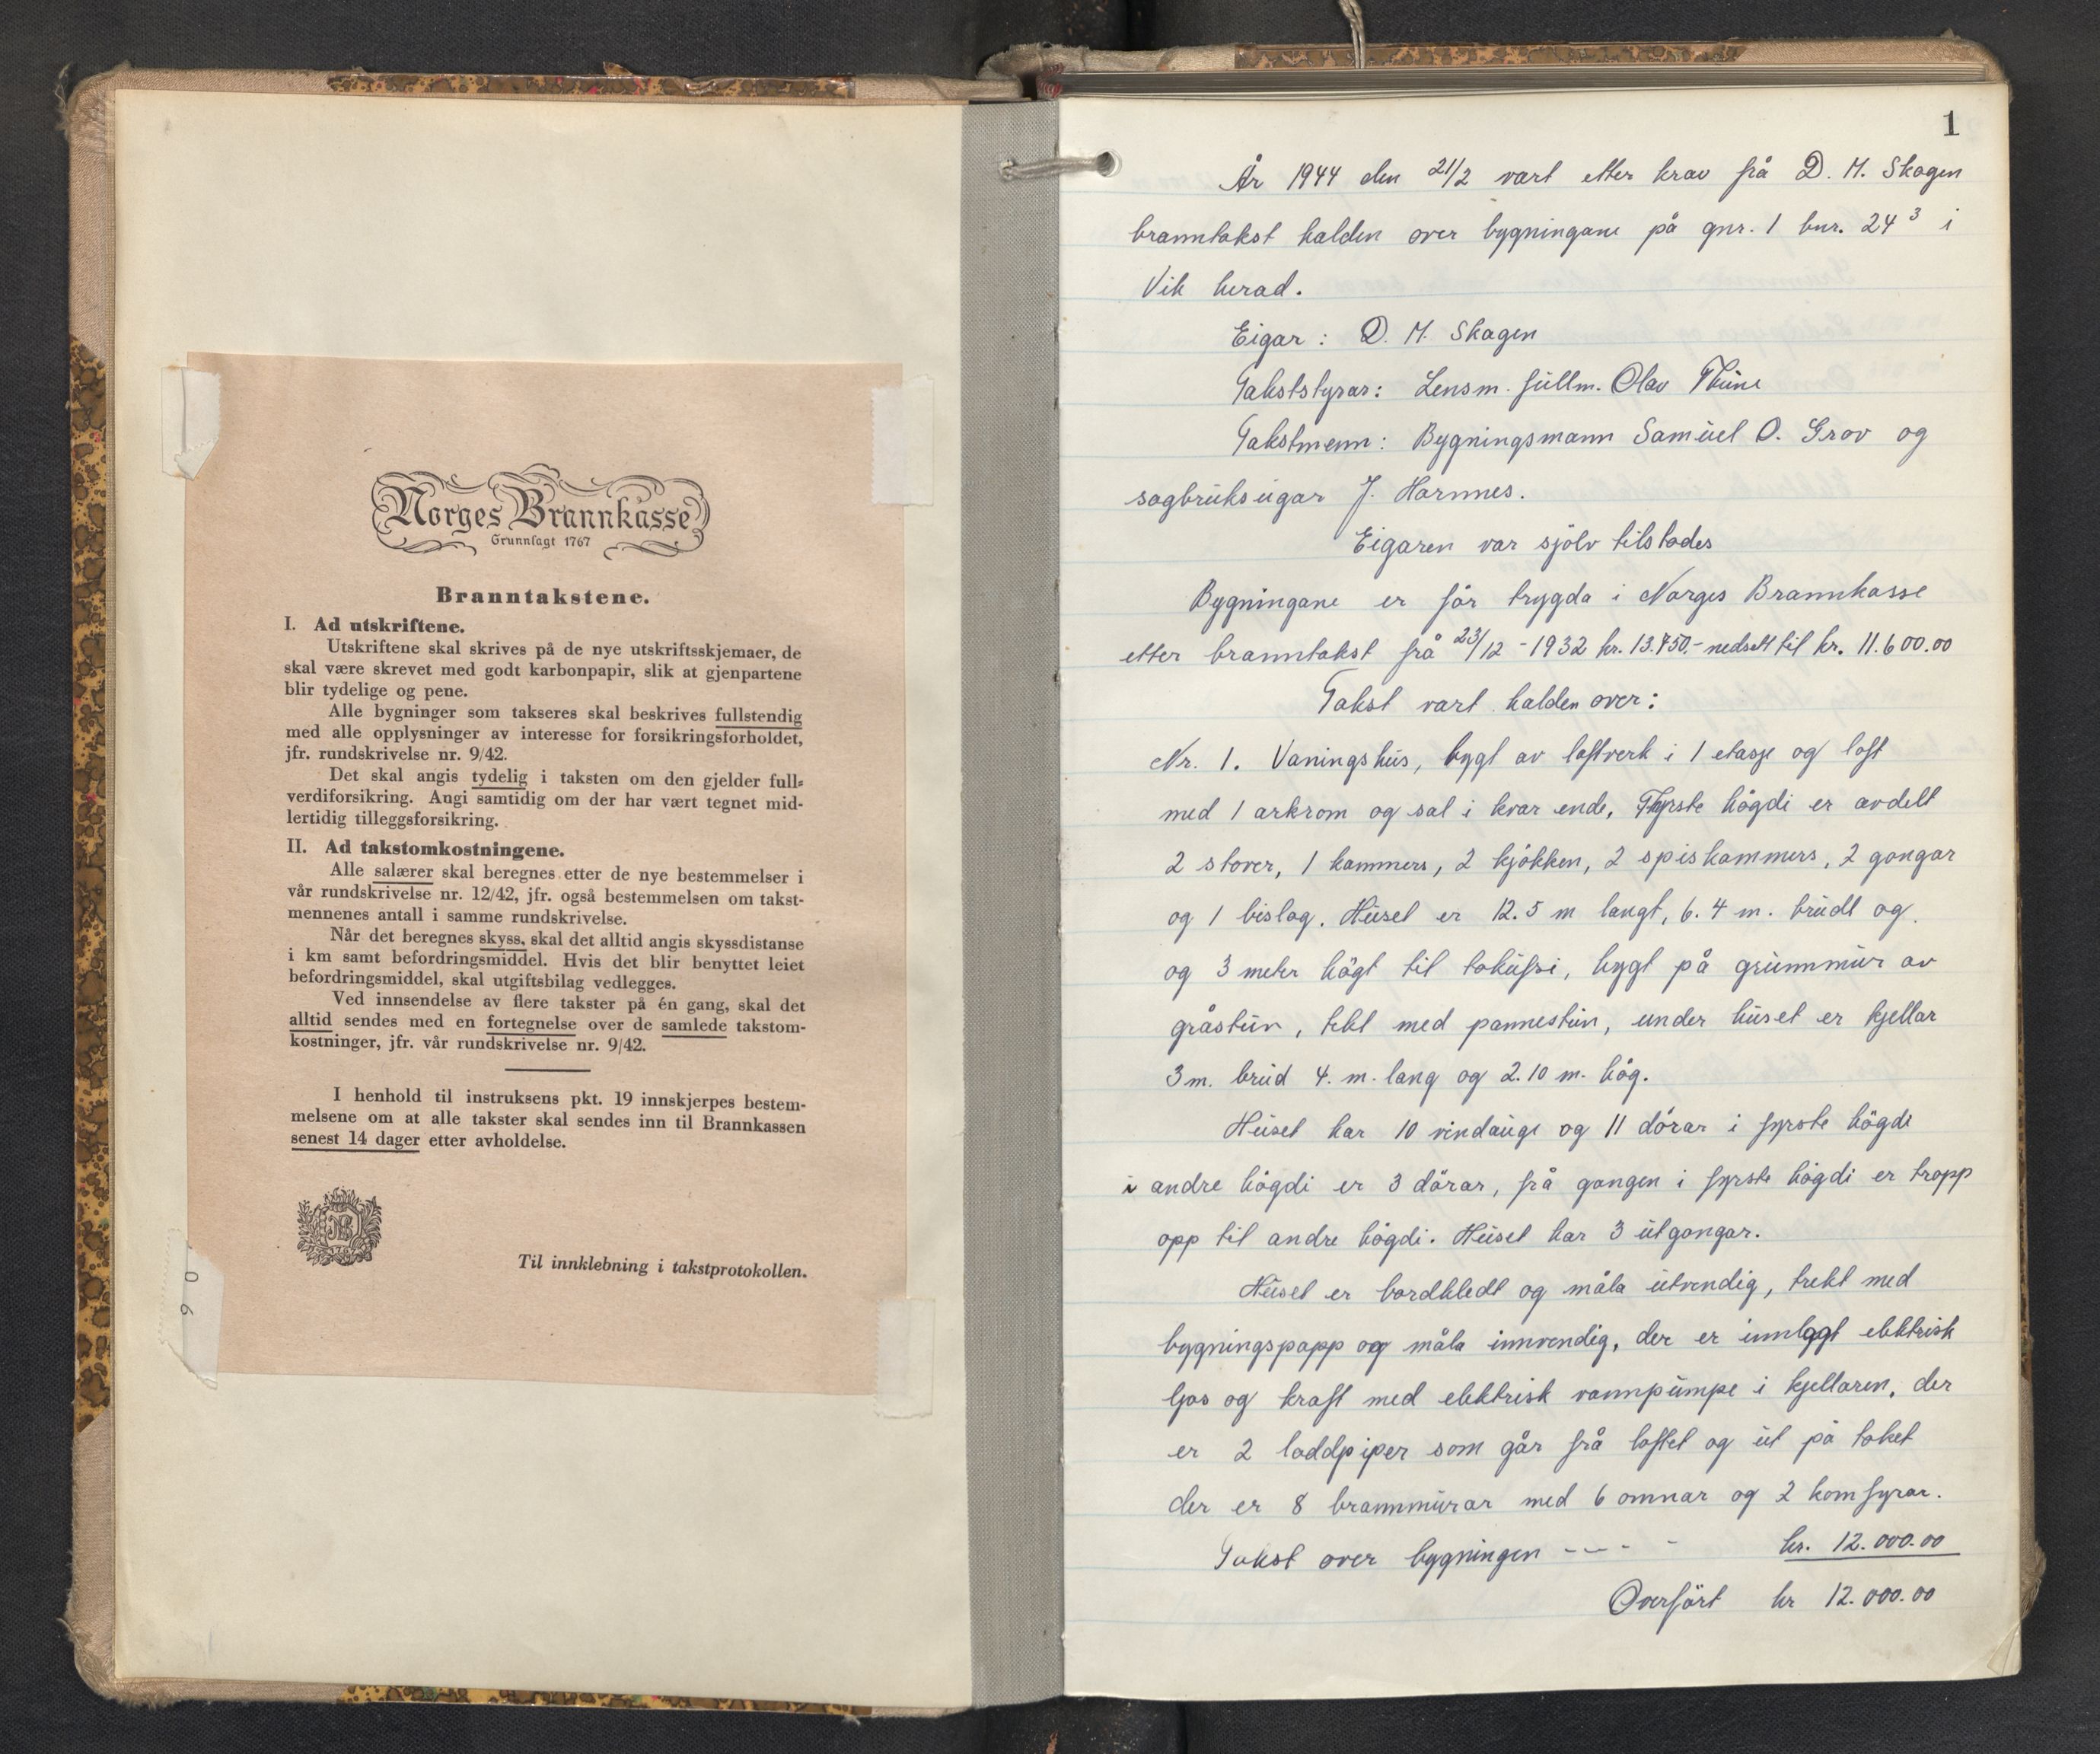 Norges Brannkasse
Grunnlagt 1767
Branntakstene.
I. Ad utskriftene.
Utskriftene skal skrives på de nye utskriftsskjemaer, de
skal være skrevet med godt karbonpapir, slik at gjenpartene
blir tydelige og pene.
Alle bygninger som takseres skal beskrives fullstendig
med alle opplysninger av interesse for forsikringsforholdet,
jfr. rundskrivelse nr. 9/42.
Det skal angis tydelig i taksten om den gjelder full-
verdiforsikring. Angi samtidig om der har vært tegnet mid-
lertidig tilleggsforsikring.
II. Ad takstomkostningene.
Alle salærer skal beregnes etter de nye bestemmelser i
vår rundskrivelse nr. 12/42, jfr. også bestemmelsen om takst-
mennenes antall i samme rundskrivelse.
Når det beregnes skyss, skal det alltid angis skyssdistanse
i km samt befordringsmiddel. Hvis det blir benyttet leiet
befordringsmiddel, skal utgiftsbilag vedlegges.
Ved innsendelse av flere takster på én gang, skal det
alltid sendes med en fortegnelse over de samlede takstom-
kostninger, jfr. vår rundskrivelse nr. 9/42.
I henhold til instruksens pkt. 19 innskjerpes bestem-
melsene om at alle takster skal sendes inn til Brannkassen
senest 14 dager etter avholdelse.
Til innklebning i takstprotokollen.
1
År 1944 den 21/2 vart etter krav frå D. M. Skagen
branntakst halden over bygningane på gnr. 1 bnr. 24³ i
Vik herad.
Eigar: D. M. Skagen
Takststyrar: Lensm. fullm. Olav Thune
Takstmenn: Bygningsmann Samuel O. Grov og
sagbrukseigar J. Hammes.
Eigaren var sjölv tilstades
Bygningane er för trygda i Norges Brannkasse
etter branntakst frå 23/12 - 1932 kr. 13.750.- nedsett til kr. 11.600.00
Takst vart halden over:
Nr. 1. Vaningshus, bygt av laftverk i 1 etasje og loft
med 1 arkrom og sal i kvar ende. Fyrste högdi er avdelt
2 stover, 1 kammers, 2 kjökken, 2 spiskammers, 2 gangar
og 1 bislag. Huset er 12.5 m langt, 6.4 m. breidt og
og 3 meter högt til takufsi, bygt på grunnmur av
gråstein, tekt med pannestein, under huset er kjellar
3 m. breid 4. m. lang og 2.10 m. hög.
Huset har 10 vindauge og 11 dörar i fyrste högdi
i andre högdi er 3 dörar, frå gangen i fyrste högdi er trapp
opp til andre högdi. Huset har 3 utgangar.
Huset er bordkledt og måla utvendig, trekt med
bygningspapp og måla innvendig, der er innlagt elektrisk
ljos og kraft med elektrisk vannpumpe i kjellaren, der
er 2 loddpiper som går frå loftet og ut på taket
der er 8 brannmurar med 6 omnar og 2 komfyrar.
Takst over bygningen - - - - kr. 12.000.00
Overfört kr 12.000.00